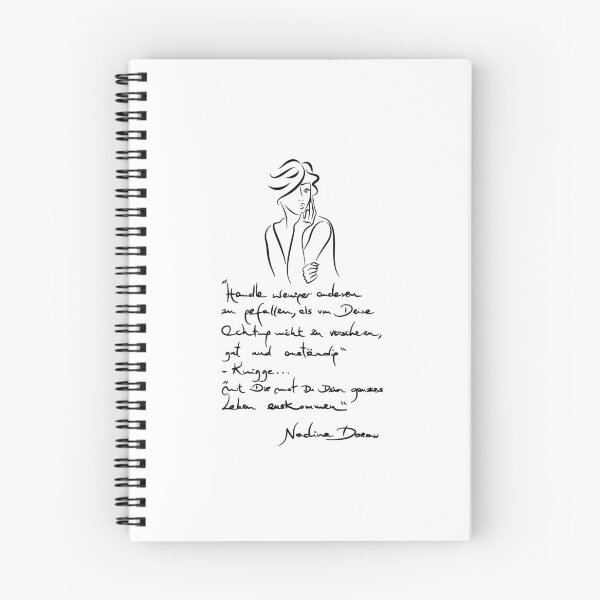 "Handle weniger anderen
zu gefallen, als um Deine
Achtung nicht zu verscherzen,
gut und anständig"
- Knigge...
"mit Dir musst Du Dein ganzes
Leben auskommen"
Nadine Dorau